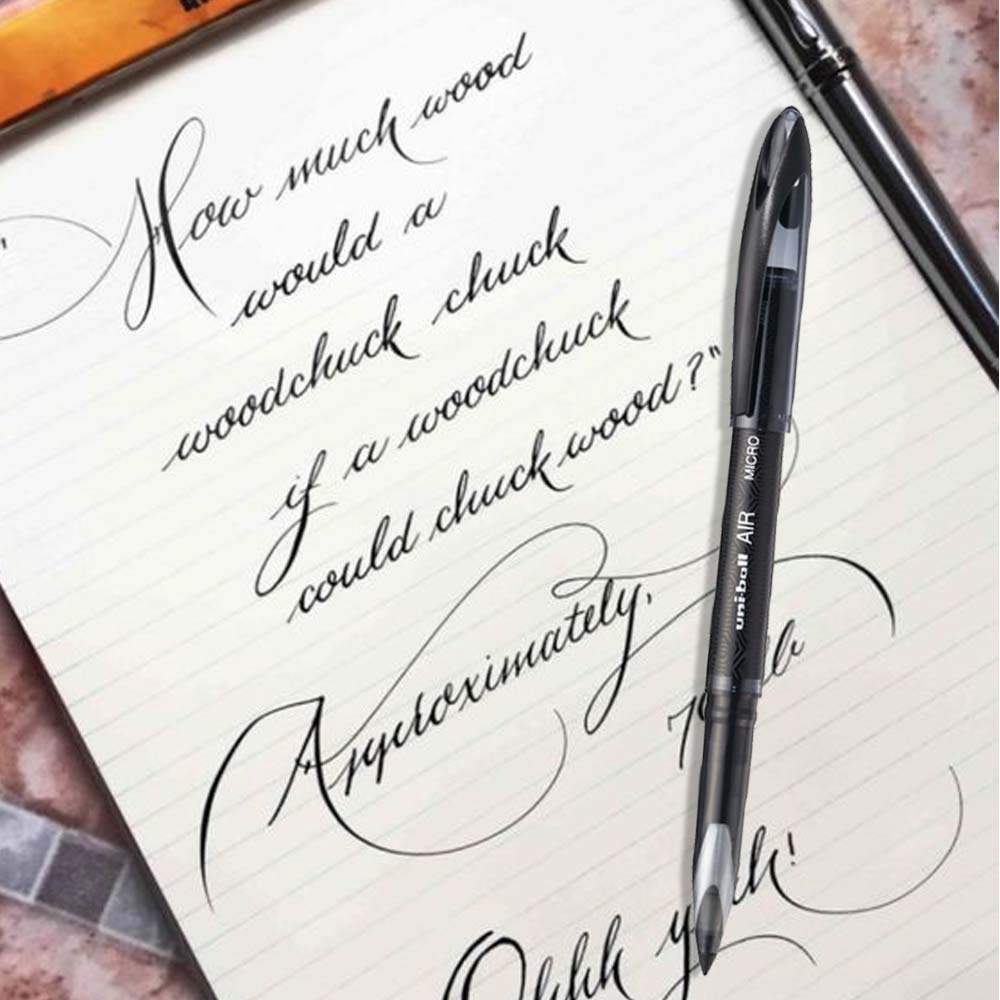 "How much wood
would a
woodchuck chuck
if a woodchuck
could chuck wood?"
Approximately,
Ohhh
uni-ball AIR MICRO